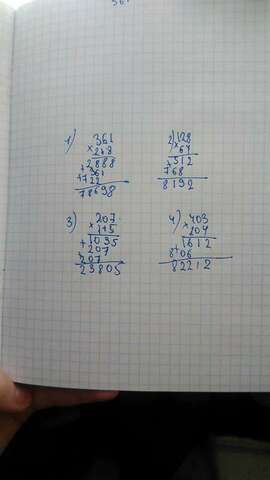 1) 361
× 218
2888
+ 361
+ 722
78698
2) 128
× 64
+ 512
768
8192
3) 207
× 115
+ 1035
207
207
23805
4) 403
× 204
1612
+ 806
82212